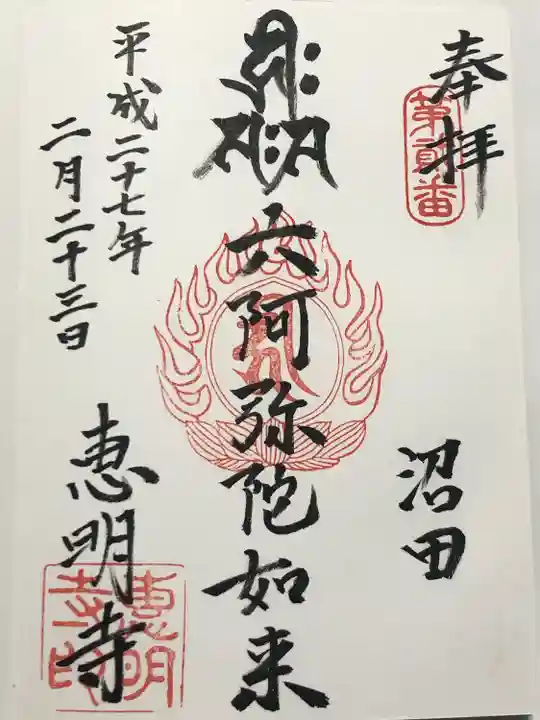 奉拝
第貳番
沼田
𑖮𑖿𑖨𑖱𑖾
𑖭𑖾 𑖭
六阿弥陀如来
平成二十七年
二月二十三日
恵明寺
恵明
寺印